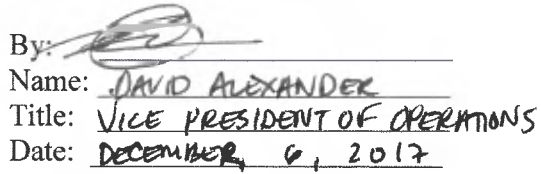 By:
Name: DAVID ALEXANDER
Title: VICE PRESIDENT OF OPERATIONS
Date: DECEMBER, 6, 2017